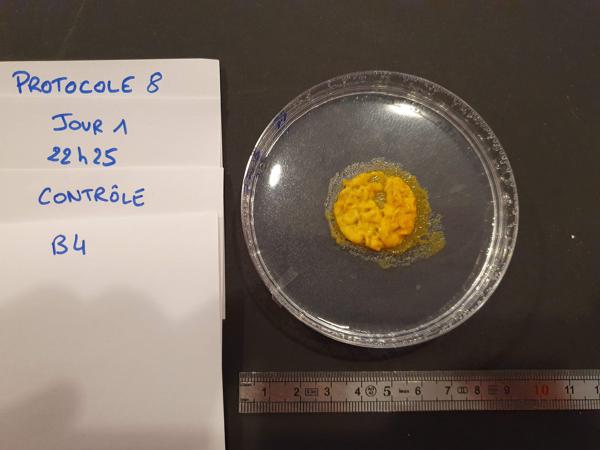 PROTOCOLE 8
JOUR 1
22h25
CONTRÔLE
B4
1 2 3 4 5 6 7 8 9 10 11